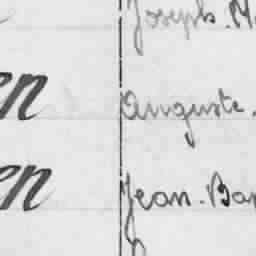 Joseph. M
en Auguste.
en Jean. Bap